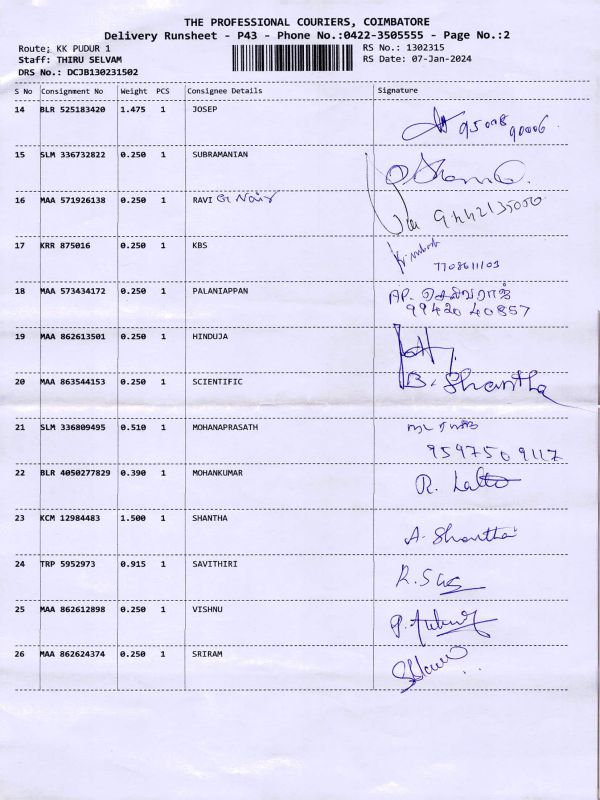 THE PROFESSIONAL COURIERS, COIMBATORE
Delivery Runsheet - P43 - Phone No.:0422-3505555 - Page No.:2
Route: KK PUDUR 1
RS No.: 1302315
Staff: THIRU SELVAM
RS Date: 07-Jan-2024
DRS No.: DCJB130231502
S No Consignment No Weight PCS Consignee Details Signature
14 BLR 525183420 1.475 1 JOSEP
95008 90006
15 SLM 336732822 0.250 1 SUBRAMANIAN
16 MAA 571926138 0.250 1 RAVI G. Nair
9442135000
17 KRR 875016 0.250 1 KBS
7708611103
18 MAA 573434172 0.250 1 PALANIAPPAN AP. செல்வராஜ்
99420 40857
19 MAA 862613501 0.250 1 HINDUJA
20 MAA 863544153 0.250 1 SCIENTIFIC B. Shantha
21 SLM 336809495 0.510 1 MOHANAPRASATH
9597509117
22 BLR 4050277829 0.390 1 MOHANKUMAR R. Lalta
23 KCM 12984483 1.500 1 SHANTHA A. Shantha
24 TRP 5952973 0.915 1 SAVITHIRI
25 MAA 862612898 0.250 1 VISHNU
26 MAA 862624374 0.250 1 SRIRAM